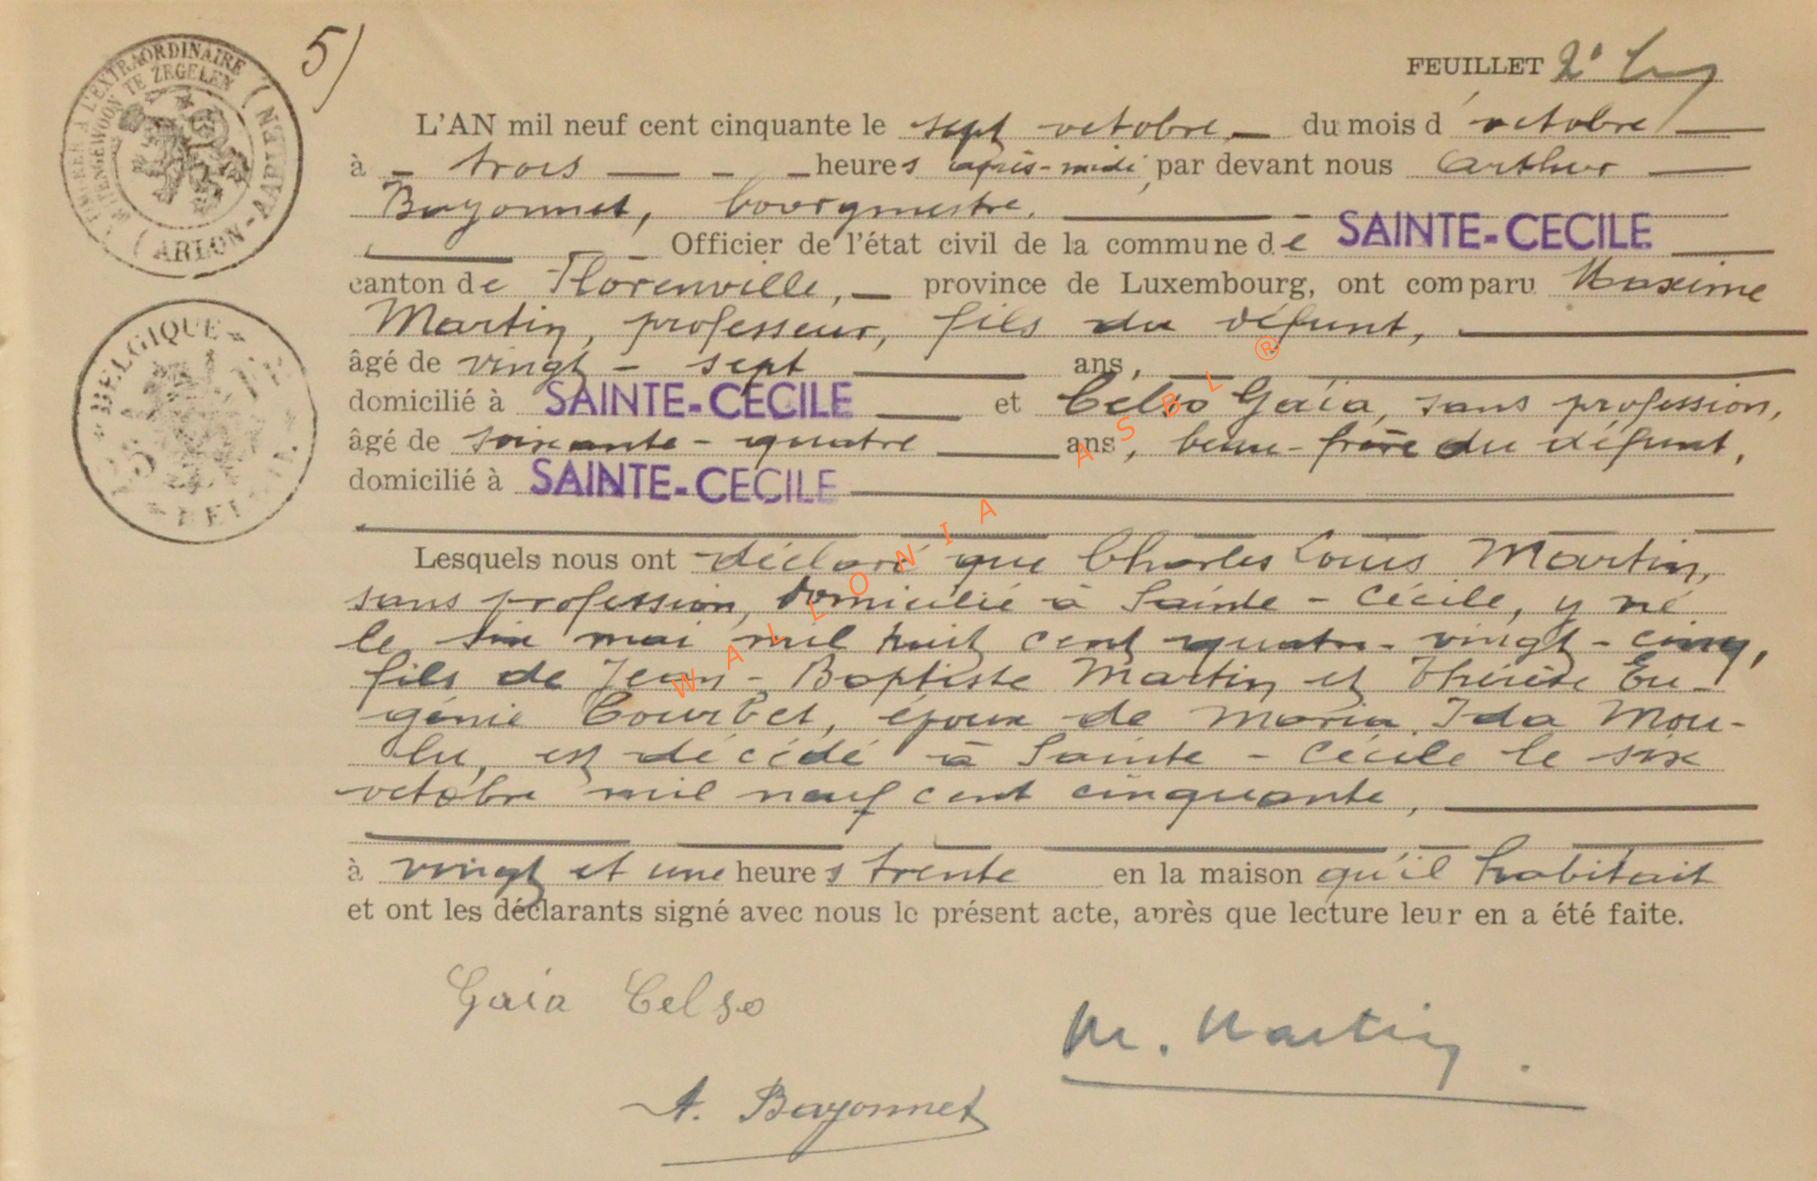 5)
FEUILLET 2e
TIMBRER A L'EXTRAORDINAIRE
BUITENGEWOON TE ZEGELEN
(ARLON-AARLEN)
BELGIQUE
L'AN mil neuf cent cinquante le sept octobre du mois d'octobre
à trois heures après-midi par devant nous Arthur
Bayonnet, bourgmestre,
Officier de l'état civil de la commune de SAINTE-CECILE
canton de Florenville, province de Luxembourg, ont comparu Maxime
Martin, professeur, fils du défunt,
âgé de vingt-sept ans,
domicilié à SAINTE-CECILE et Celso Gaia, sans profession,
âgé de soixante-quatre ans, beau-frère du défunt,
domicilié à SAINTE-CECILE
Lesquels nous ont déclaré que Charles Louis Martin,
sans profession, domicilié à Sainte-Cécile, y né
le six mai mil huit cent quatre-vingt-cinq,
fils de Jean-Baptiste Martin et Thérèse Eu-
génie Courbet, époux de Maria Ida Mou-
lu, est décédé à Sainte-Cécile le six
octobre mil neuf cent cinquante,
à vingt et une heures trente en la maison qu'il habitait
et ont les déclarants signé avec nous le présent acte, après que lecture leur en a été faite.
Gaia Celso
M. Martin.
A. Bayonnet
WALLONIA ASBL ®